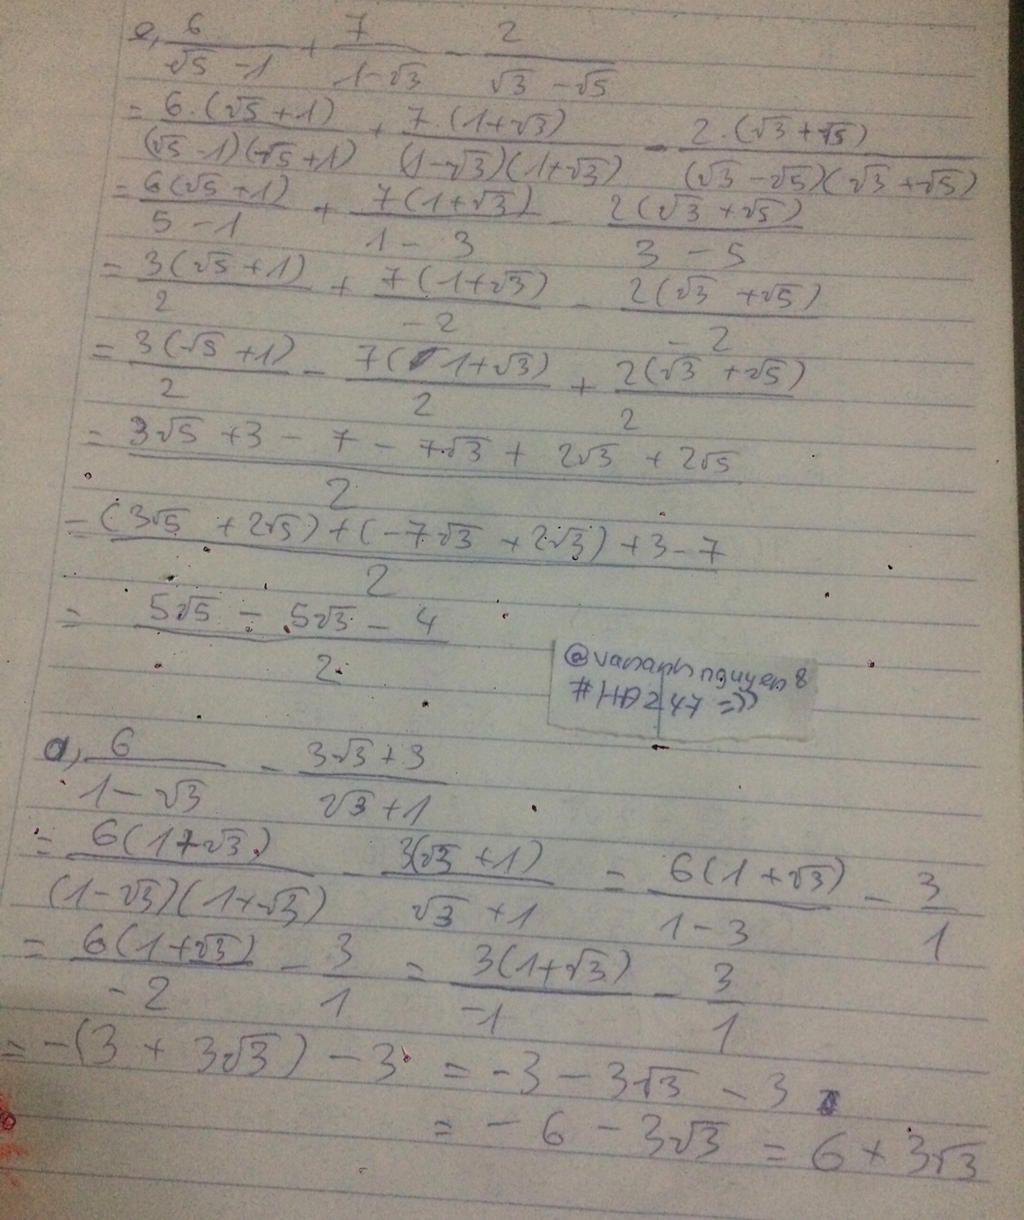 e, 6/(√5 - 1) + 7/(1 - √3) - 2/(√3 - √5)
= 6.(√5 + 1)/((√5 - 1)(√5 + 1)) + 7.(1 + √3)/((1 - √3)(1 + √3)) - 2.(√3 + √5)/((√3 - √5)(√3 + √5))
= 6(√5 + 1)/(5 - 1) + 7(1 + √3)/(1 - 3) - 2(√3 + √5)/(3 - 5)
= 3(√5 + 1)/2 + 7(1 + √3)/(-2) - 2(√3 + √5)/(-2)
= 3(√5 + 1)/2 - 7(1 + √3)/2 + 2(√3 + √5)/2
= (3√5 + 3 - 7 - 7√3 + 2√3 + 2√5)/2
= ((3√5 + 2√5) + (-7√3 + 2√3) + 3 - 7)/2
= (5√5 - 5√3 - 4)/2
@vananhnguyen8
#HD247 =))
a, 6/(1 - √3) - (3√3 + 3)/(√3 + 1)
= 6(1 + √3)/((1 - √3)(1 + √3)) - 3(√3 + 1)/(√3 + 1) = 6(1 + √3)/(1 - 3) - 3/1
= 6(1 + √3)/(-2) - 3/1 = 3(1 + √3)/(-1) - 3/1
= -(3 + 3√3) - 3 = -3 - 3√3 - 3
= - 6 - 3√3 = 6 + 3√3